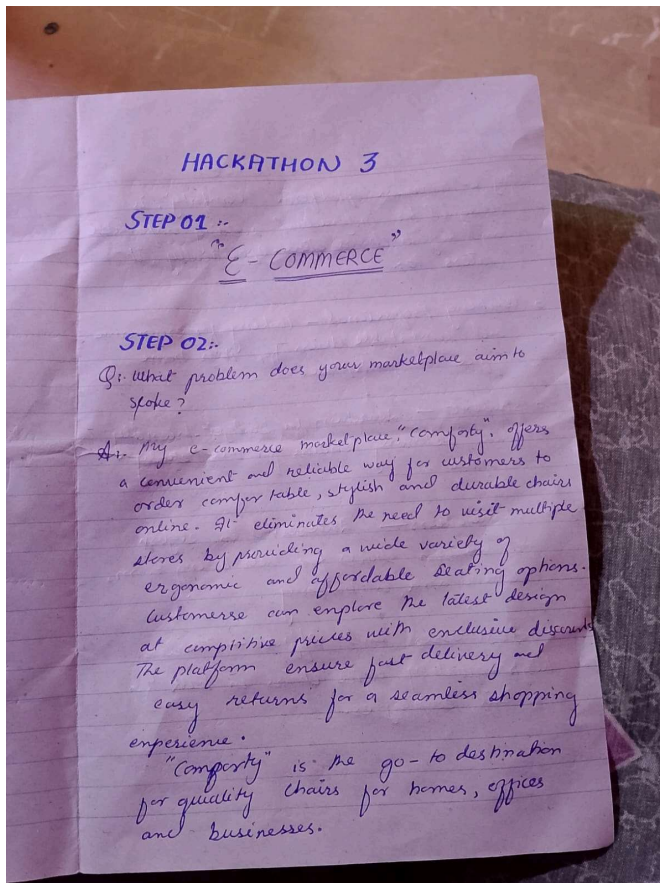 HACKATHON 3
STEP 01 :-
"E - COMMERCE"
STEP 02:-
Q:- What problem does your marketplace aim to
slove?
A:- My e-commerce marketplace, "comforty", offers
a convenient and reliable way for customers to
order comfortable, stylish and durable chairs
online. It eliminates the need to visit multiple
stores by providing a wide variety of
ergonomic and affordable seating options.
Customerse can explore the latest design
at comptitive prices with exclusive discounts
The platform ensure fast delivery and
easy returns for a seamless shopping
experience.
"Comforty" is the go-to destination
for quality chairs for homes, offices
and businesses.